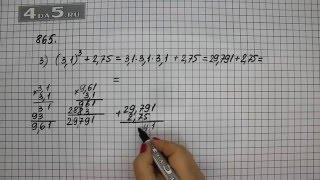 4DA5.RU
865.
3) (3,1)³ + 2,75 = 3,1 · 3,1 · 3,1 + 2,75 = 29,791 + 2,75 =
=
× 3,1
3,1
31
93
9,61
× 9,61
3,1
961
2883
29791
+ 29,791
2,75
41